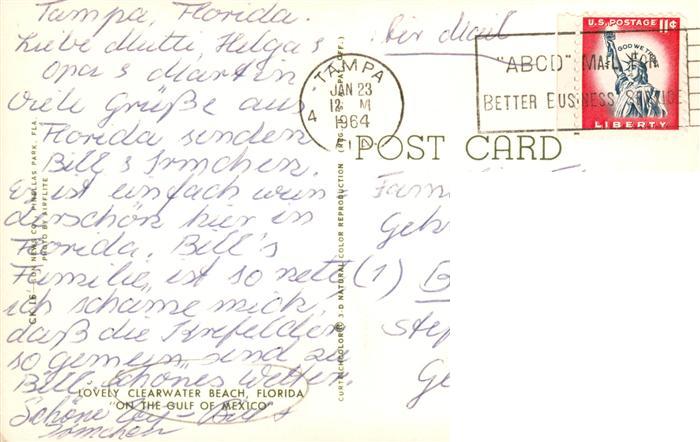 Tampa, Florida.
Liebe Mutti, Helga &
Opa & Martin
Viele Grüße aus
Florida senden
Bill & Irmchen.
Es ist einfach wun
derschön hier in
Florida. Bill's
Familie, ist so nett
ich schäme mich,
daß die Krefelder
so gemein sind zu
Bill. Schönes Wetter.
Schöne
Bill &
Irmchen
LOVELY CLEARWATER BEACH, FLORIDA
"ON THE GULF OF MEXICO"
CK 16 SUN NEWS CO., PINELLAS PARK, FLA.
PHOTO BY AIRFLITE
CURTEICHCOLOR® 3-D NATURAL COLOR REPRODUCTION (REG. U.S. PAT. OFF.)
Air Mail
TAMPA
JAN 23
12 M
1964
4
FLA
"ABCD" MAIL FOR
BETTER BUSINESS SERVICE
U.S. POSTAGE 11¢
IN GOD WE TRUST
LIBERTY
POST CARD
Fam
Geb
(1) B
Step
Ge